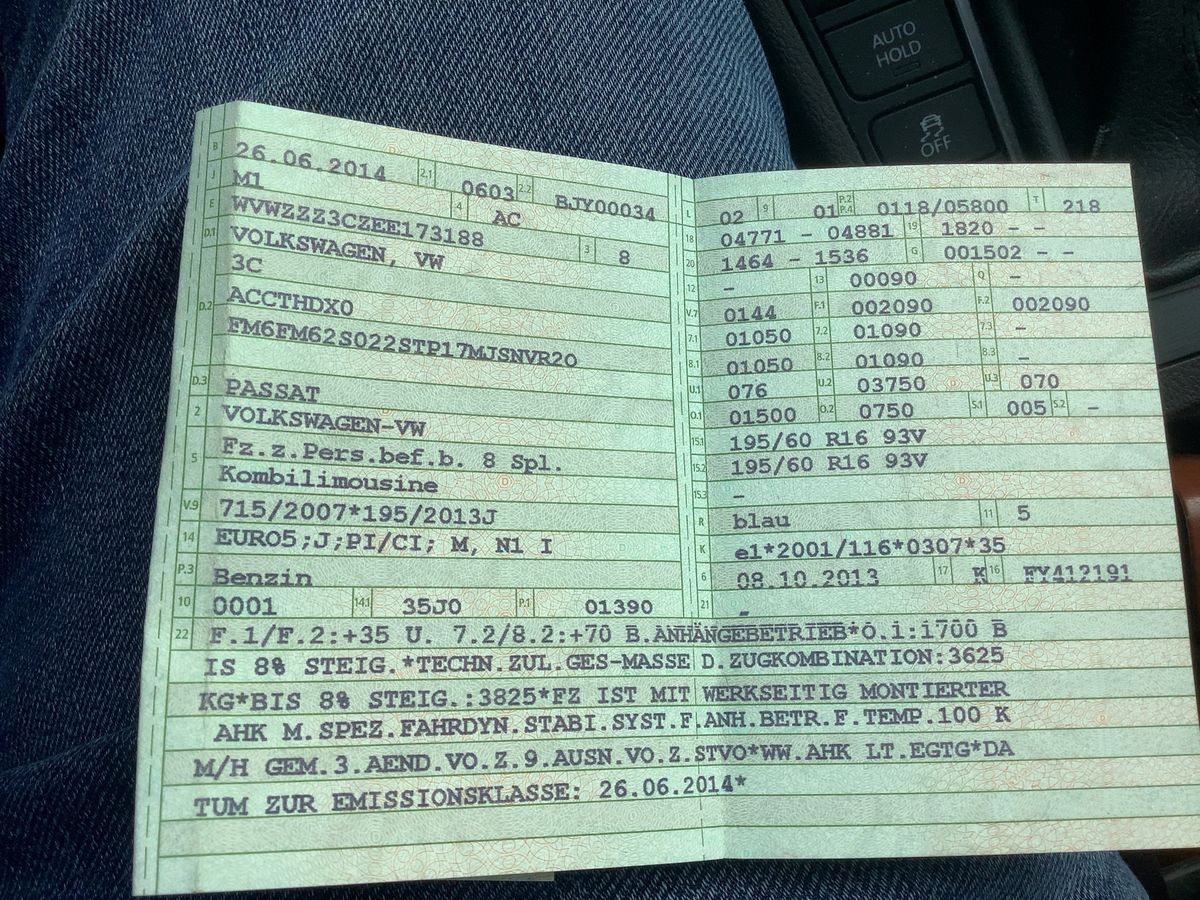 AUTO
HOLD
OFF
B 26.06.2014 2.1 0603 2.2 BJY00034
J M1 4 AC
E WVWZZZ3CZEE173188 3 8
D.1 VOLKSWAGEN, VW
3C
D.2 ACCTHDX0
FM6FM62S022STP17MJSNVR2O
D.3 PASSAT
2 VOLKSWAGEN-VW
5 Fz.z.Pers.bef.b. 8 Spl.
Kombilimousine
V.9 715/2007*195/2013J
14 EURO5;J;PI/CI; M, N1 I
P.3 Benzin
10 0001 14.1 35J0 P.1 01390
L 02 9 01 P.2 P.4 0118/05800 T 218
18 04771 - 04881 19 1820 - -
20 1464 - 1536 G 001502 - -
12 - 13 00090 Q -
V.7 0144 F.1 002090 F.2 002090
7.1 01050 7.2 01090 7.3 -
8.1 01050 8.2 01090 8.3 -
U.1 076 U.2 03750 U.3 070
O.1 01500 O.2 0750 S.1 005 S.2 -
15.1 195/60 R16 93V
15.2 195/60 R16 93V
15.3 -
R blau 11 5
K e1*2001/116*0307*35
6 08.10.2013 17 K 16 FY412191
21 -
22 F.1/F.2:+35 U. 7.2/8.2:+70 B.ANHÄNGEBETRIEB*O.1:1700 B
IS 8% STEIG.*TECHN.ZUL.GES-MASSE D.ZUGKOMBINATION:3625
KG*BIS 8% STEIG.:3825*FZ IST MIT WERKSEITIG MONTIERTER
AHK M.SPEZ.FAHRDYN.STABI.SYST.F.ANH.BETR.F.TEMP.100 K
M/H GEM.3.AEND.VO.Z.9.AUSN.VO.Z.STVO*WW.AHK LT.EGTG*DA
TUM ZUR EMISSIONSKLASSE: 26.06.2014*